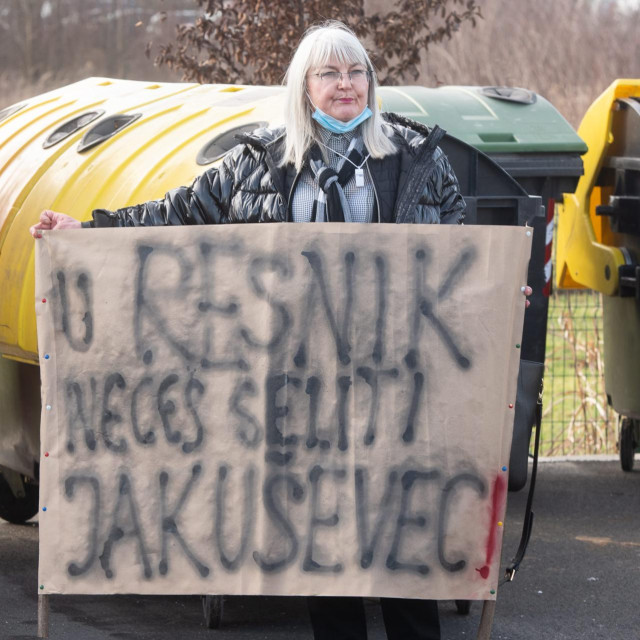 U RESNIK
NEĆEŠ SELITI
JAKUŠEVEC!